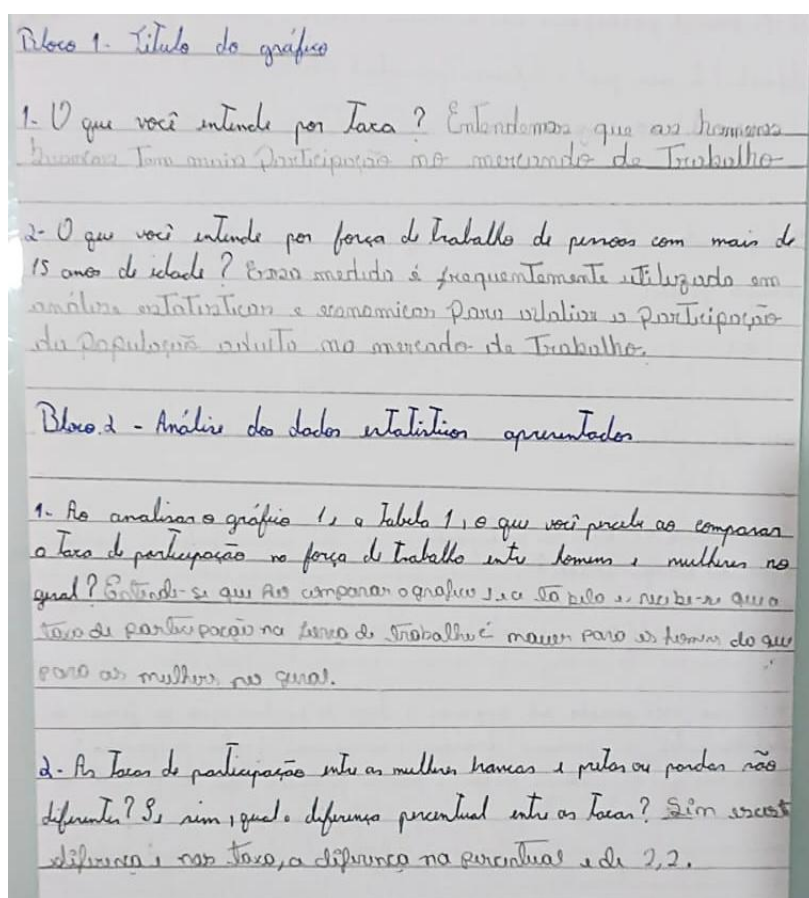 Bloco 1. Título do gráfico
1- O que você entende por Taxa? Entendemos que os homens
brancos Tem mais Participação no mercado de Trabalho
2- O que você entende por força de trabalho de pessoas com mais de
15 anos de idade? Essa medida é frequentemente utilizada em
análise estatísticas e economicas Para avaliar a Participação
da População adulta no mercado de Trabalho.
Bloco.2 - Análise dos dados estatísticos apresentados
1- Ao analisar o gráfico 1, e a Tabela 1, o que você percebe ao comparar
a Taxa de participação na força de trabalho entre homens e mulheres no
geral? Entende-se que Ao comparar o grafico 1, e a tabela 1, que a
taxa de participação na força de trabalho é maior para os homens do que
para as mulheres no geral.
2- As Taxas de participação entre as mulheres brancas e pretas ou pardas são
diferentes? Se sim, qual a diferença percentual entre as Taxas? Sim
diferença nas taxa, a diferença na percentual é de 2,2.